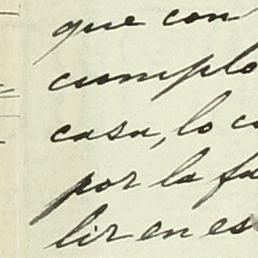 que con
cumplo
casa, lo c
por la fa
lir en es